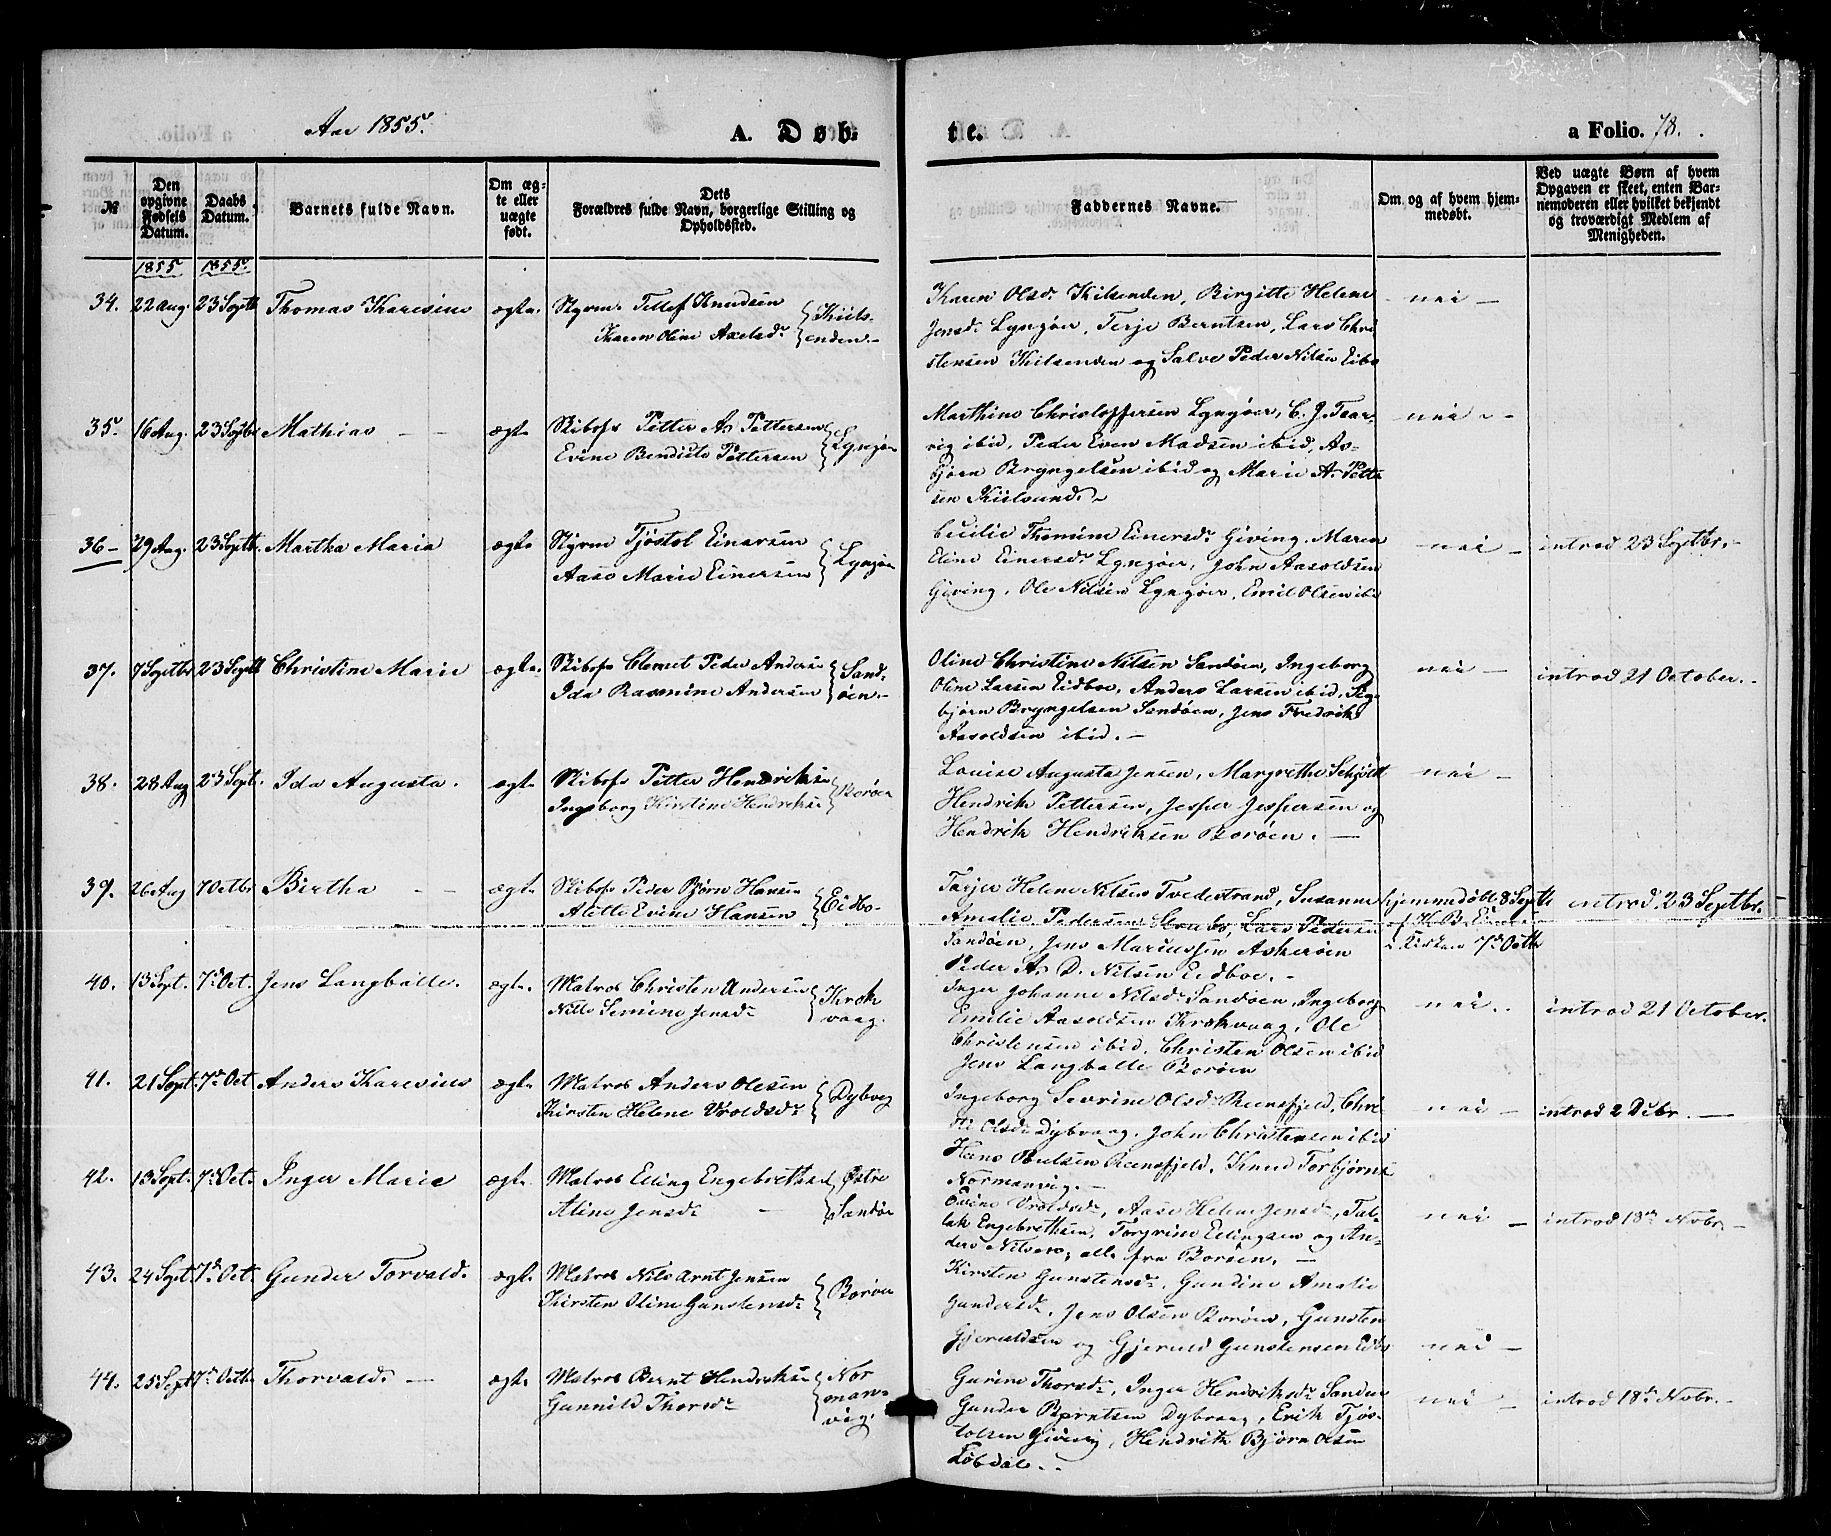 Aar 1855.
A. Døb-
te.
a Folio. 78.
№
Den opgivne Fødsels Datum.
Daabs Datum.
Barnets fulde Navn.
Om ægte eller uægte født.
Dets Forældres fulde Navn, borgerlige Stilling og Opholdssted.
Faddernes Navne.
Om og af hvem hjemmedøbt.
Ved uægte Børn af hvem Opgaven er skeet, enten Barnemoderen eller hvilket bekjendt og troværdigt Medlem af Menigheden.
1855 1855
34. 22 Aug. 23 Septb Thomas Karesius ægte. Styrm. Tellef Knudsen
Karen Oline Axelsdr
Kiils-
enden.-
Karen Olsdr Kilsenden, Birgitte Helene
Jensdr Lyngøer, Terje Berntsen, Lars Chri
stensen Kilsenden og Salve Peder Nilsen Eibo
nei -
35. 16 Aug. 23 Septbr Mathias - - ægte Skibsfr Petter As Pettersen
Evine Bendiste Pettersen
Lyngør
Marthine Christoffersen Lyngøer, C. J. Taar-
vig ibid, Peder Even Madsen ibid, As-
bjørn Bryngelsen ibid og Marie A. Petter
sen Kiilsund. -
nei - -
36 - 29 Aug. 23 Septb. Martha Maria ægte Styrm Tjøstol Einersen
Aase Marie Einersen
Lyngør
Cecilie Thomine Einersdr Giving, Maren
Eline Einersdr Lyngøer, John Aasoldsen
Giving, Ole Nilsen Lyngøer, Emil Olsen ibi
nei - introd 23 Septbr. -
37. 7 Septbr 23 Septb Christine Marie ægte. Skibsfr Clemet Peder Anderse
Ida Rasmine Andersen
Sand-
øen. -
Oline Christine Nilsen Sandøen, Ingeborg
Oline Larsen Eidboe, Anders Larsen ibid, Sig-
bjørn Bryngelsen Sandøen, Jens Fredrik
Aasoldsen ibid. -
nei - introd 21 October. -
38. 28 Aug 23 Sept. Ida Augusta. ægte Skibsfr Petter Hendrikse
Ingeborg Kirstine Hendrikse
Borøen
Louise Augusta Jensen, Margrethe Schjøldt
Hendrik Pettersen, Jesper Jespersen og
Hendrik Hendriksen Borøen. -
nei -
39. 26 Aug 7 Octbr Birtha - - ægte Skibsfr Peder Bjørn Hansen
Alette Evine Hansen
Eidbo-
Tarjer Helene Nilsen Tvedestrand, Susanne
Amalie Pedersen , Lars Pedersen
Sandøen, Jens Mariussen Askerøen
Peder As D. Nilsen Eidboe. -
hjemmedøbt 8 Septb
af H. B.
i Kirken 7de Octb
introd. 23 Septbr.
40. 13 Sept. 7de Oct. Jens Langballe. ægte. Matros Christen Andersen
Nille Semine Jensdr
Krok
vaag.
Inger Johanne Nilsdr Sandøen, Ingeborg
Emilie Aasoldsen Krokvaag, Ole
Christensen ibid, Christen Olsen ibid
Jens Langballe Borøen
nei. . introd 21 October.
41. 21 Sept. 7de Oct. Anders Karesius ægte Matros Anders Olesen
Kirsten Helene Vroldsdr
Dybveg
Ingeborg Sevrine Olsdr Reensfjeld, Chri
sti Olsdr Dybvaag, John Christensen ibid
Hans Poulsen Reensfjeld, Knud Torbjørns
Normanvig. -
nei - introd 2 Debr. -
42. 13 Sept. 7de Oct. Inger Marie ægte. Matros Elling Engebrethse
Aline Jensdr -
Østre
Sandø
Evine Vroldsdr, Aase Helene Jensdr, Tal-
lak Engebrethsen, Torgrine Ellingsen og An-
ders Nilsen, alle fra Borøen. -
nei - introd 18de Novbr -
43. 24 Sept. 7de Oct. Gunder Torvald. ægte. Matros Nils Arnt Jensen
Kirsten Oline Gunstensdr
Borøen
Kirsten Gunstensdr, Gundine Amalie
Gundersdr, Jens Olsen Borøen, Gunsten
Gjeruldsen og Gjeruld Gunstensen Eidbo
nei -
44. 25 Sept 7de Octb. Thorvald. - ægte Matros Bernt Hendrikse
Gunnild Thorsdr
Nor
man-
vig.
Gurine Thorsdr, Inger Hendriksdr Sandøe
Gunder Berntsen Dybvaag, Erik Tjøs-
tolsen Giving, Hendrik Bjørn Olsen
Løbdal. -
nei - introd 18de Novbr. -